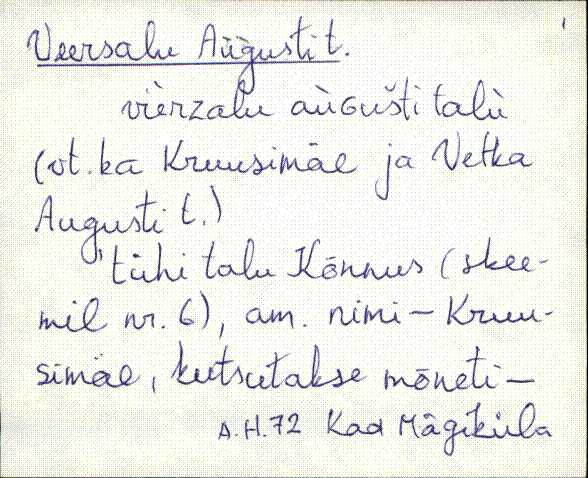 1
Veersalu Augusti t.
vierzalu au̇Gušti talu
(vt. ka Kruusimäe ja Vetka
Augusti t.)
tühi talu Kõnnus (skee-
mil nr. 6), am. nimi – Kruu-
simäe, kutsutakse mõneti –
A.H.72 Kad Mägiküla